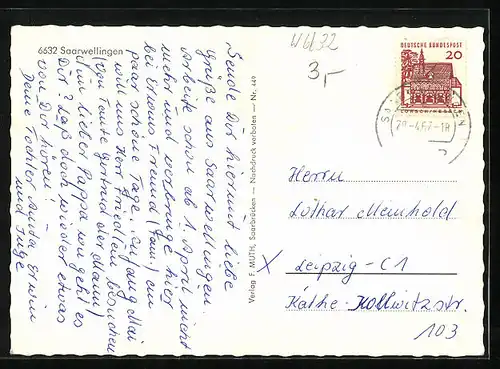 6632 Saarwellingen
W6632
3,-
Sende Dir hiermit liebe
Grüße aus Saarwellingen.
Arbeite schon ab 1. April nicht
mehr und verbringe hier
bei Erwins Freund (Fam.) ein
paar schöne Tage. Anfang Mai
will uns Herr Friedlein besuchen
(von Tante Gertrud der Mann)
Mein lieber Pappa wie geht es
Dir? Laß doch wieder etwas
von Dir hören!
Deine Tochter Erwin
und Inge
Verlag F. MUTH, Saarbrücken — Nachdruck verboten — Nr. 449
DEUTSCHE BUNDESPOST
20
LORSCH/HESSEN
Herrn
Lothar Meinhold
X Leipzig - C1
Käthe-Kollwitzstr.
103